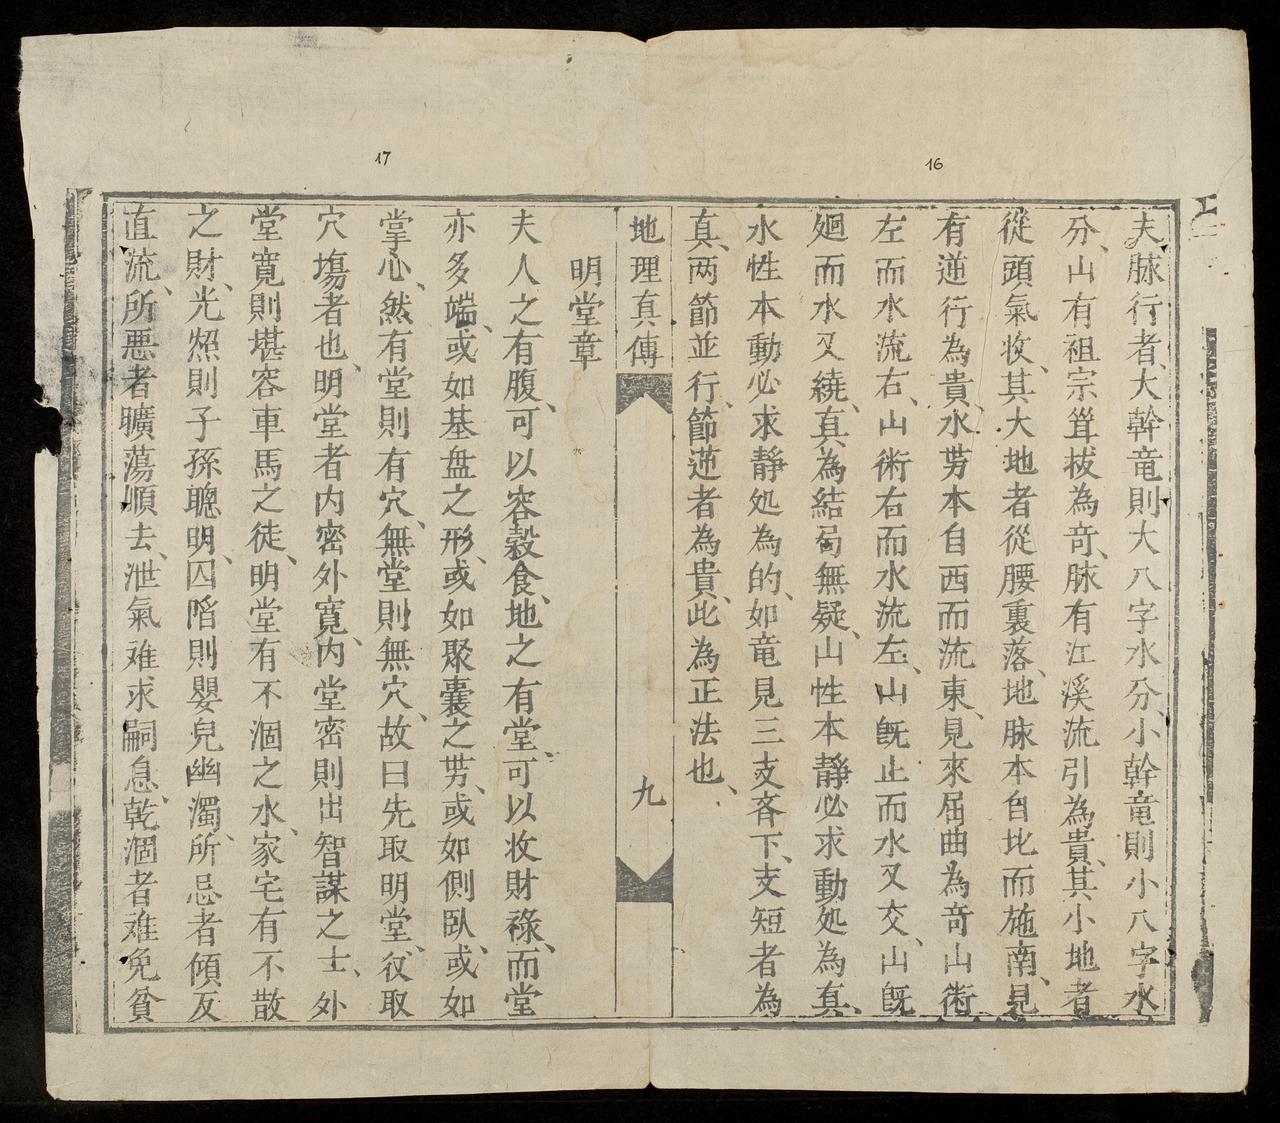 16
夫脉行者、大幹竜則大八字水分、小幹竜則小八字水
分、山有祖宗聳拔為竒、脉有江溪流引為貴、其小地者
從頭氣收、其大地者從腰裏落、地脉本自北而施南、見
有逆行為貴、水势本自西而流東、見來屈曲為竒山術
左而水流右、山術右而水流左、山既止而水又交、山既
廻而水又繞、真為結局無疑、山性本静必求動処為真、
水性本動必求静処為的、如竜見三支斉下、支短者為
真、两節並行、節逆者為貴、此為正法也、
地理真傳
九
17
明堂章
夫人之有腹、可以容穀食、地之有堂、可以收財祿、而堂
亦多端、或如基盘之形、或如聚囊之势、或如側臥、或如
掌心、然有堂則有穴、無堂則無穴、故曰先取明堂、役取
穴塲者也、明堂者内密外寬、内堂密則出智謀之士、外
堂寛則堪容車馬之徒、明堂有不涸之水、家宅有不散
之財、光照則子孫聰明、囚陷則嬰兒幽濁、所忌者傾反
直流、所悪者曠蕩順去、泄氣难求嗣息、乾涸者难免貧